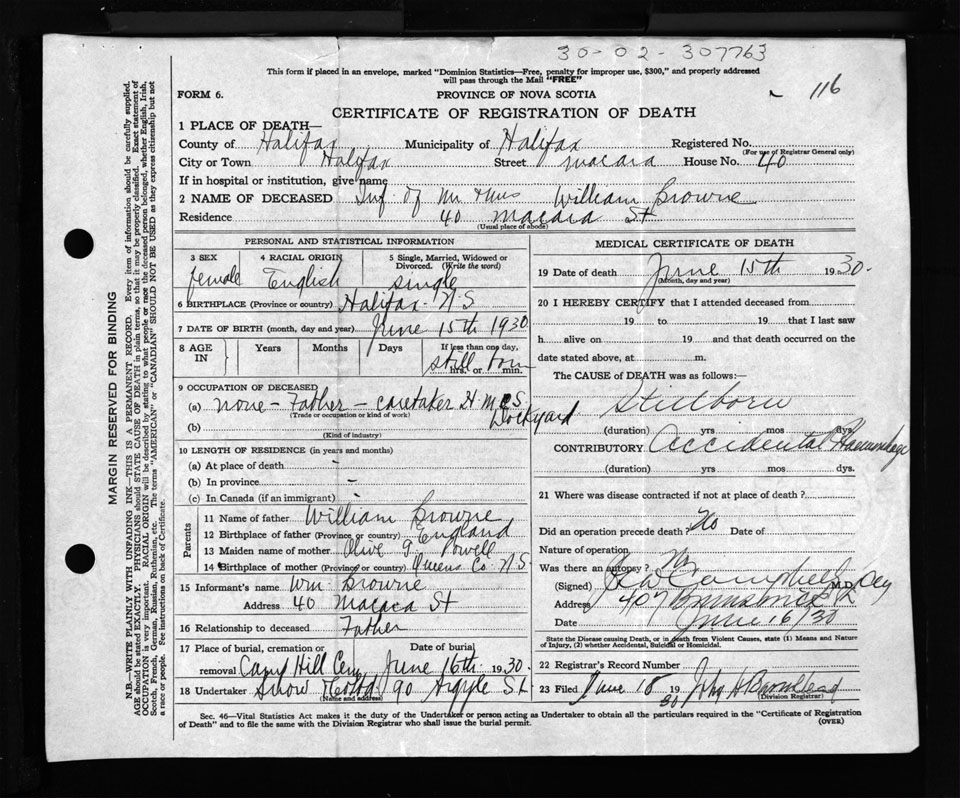 30-02-307763
This form if placed in an envelope, marked "Dominion Statistics—Free, penalty for improper use, $300," and properly addressed
will pass through the Mail "FREE"
116
FORM 6.
PROVINCE OF NOVA SCOTIA
CERTIFICATE OF REGISTRATION OF DEATH
1 PLACE OF DEATH—
County of Halifax Municipality of Halifax Registered No.
(For use of Registrar General only)
City or Town Halifax Street Macara House No. 40
If in hospital or institution, give name
2 NAME OF DECEASED Inf of Mr & Mrs William Browne
Residence 40 Macara St
(Usual place of abode)
PERSONAL AND STATISTICAL INFORMATION
3 SEX
female
4 RACIAL ORIGIN
English
5 Single, Married, Widowed or
Divorced. (Write the word)
single
6 BIRTHPLACE (Province or country) Halifax N S
7 DATE OF BIRTH (month, day and year) June 15th 1930
8 AGE IN Years Months Days If less than one day,
hrs. or min.
still born
9 OCCUPATION OF DECEASED
(a) none - Father - caretaker H M C S Dockyard
(Trade or occupation or kind of work)
(b)
(Kind of industry)
10 LENGTH OF RESIDENCE (in years and months)
(a) At place of death -
(b) In province -
(c) In Canada (if an immigrant)
Parents
11 Name of father William Browne
12 Birthplace of father (Province or country) England
13 Maiden name of mother Olive G. Powell
14 Birthplace of mother (Province or country) Queens Co N S
15 Informant's name Wm Browne
Address 40 Macara St
16 Relationship to deceased Father
17 Place of burial, cremation or removal Camp Hill Cem
Date of burial June 16th 1930
18 Undertaker Snow & Co Ltd 90 Argyle St
(Name and address)
MEDICAL CERTIFICATE OF DEATH
19 Date of death June 15th 1930
(Month, day and year)
20 I HEREBY CERTIFY that I attended deceased from
19 to 19 that I last saw
h alive on 19 and that death occurred on the
date stated above, at m.
The CAUSE OF DEATH was as follows:—
Stillborn
(duration) yrs mos dys.
CONTRIBUTORY Accidental Haemorrhage
(duration) yrs mos dys.
21 Where was disease contracted if not at place of death?
Did an operation precede death? No Date of
Nature of operation
Was there an autopsy? No
(Signed) Campbell M.D.
Address 407 Brunswick St
Date June 16/30
State the Disease causing Death, or in death from Violent Causes, state (1) Means and Nature
of Injury, (2) whether Accidental, Suicidal or Homicidal.
22 Registrar's Record Number
23 Filed June 18 1930 John H Barnstead
(Division Registrar)
Sec. 46—Vital Statistics Act makes it the duty of the Undertaker or person acting as Undertaker to obtain all the particulars required in the "Certificate of Registration
of Death" and to file the same with the Division Registrar who shall issue the burial permit.
(OVER)
MARGIN RESERVED FOR BINDING
N.B.—WRITE PLAINLY WITH UNFADING INK—THIS IS A PERMANENT RECORD. Every item of information should be carefully supplied.
AGE should be stated EXACTLY. PHYSICIANS should STATE CAUSE OF DEATH in plain terms, so that it may be properly classified. Exact statement of
OCCUPATION is very important. RACIAL ORIGIN will be described by stating to what people or race the deceased person belonged, whether English, Irish,
Scotch, French, German, Russian, Ruthenian, etc. The terms "AMERICAN" or "CANADIAN" SHOULD NOT BE USED as they express citizenship but not
a race or people. See instructions on back of Certificate.